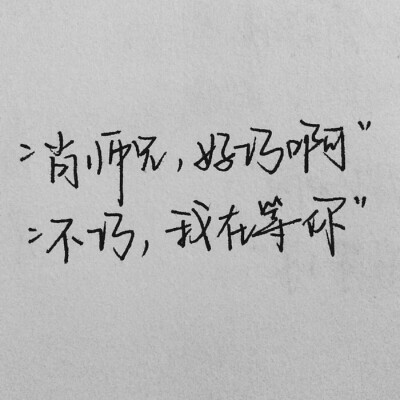 "肖师兄,好巧啊"
"不巧,我在等你"